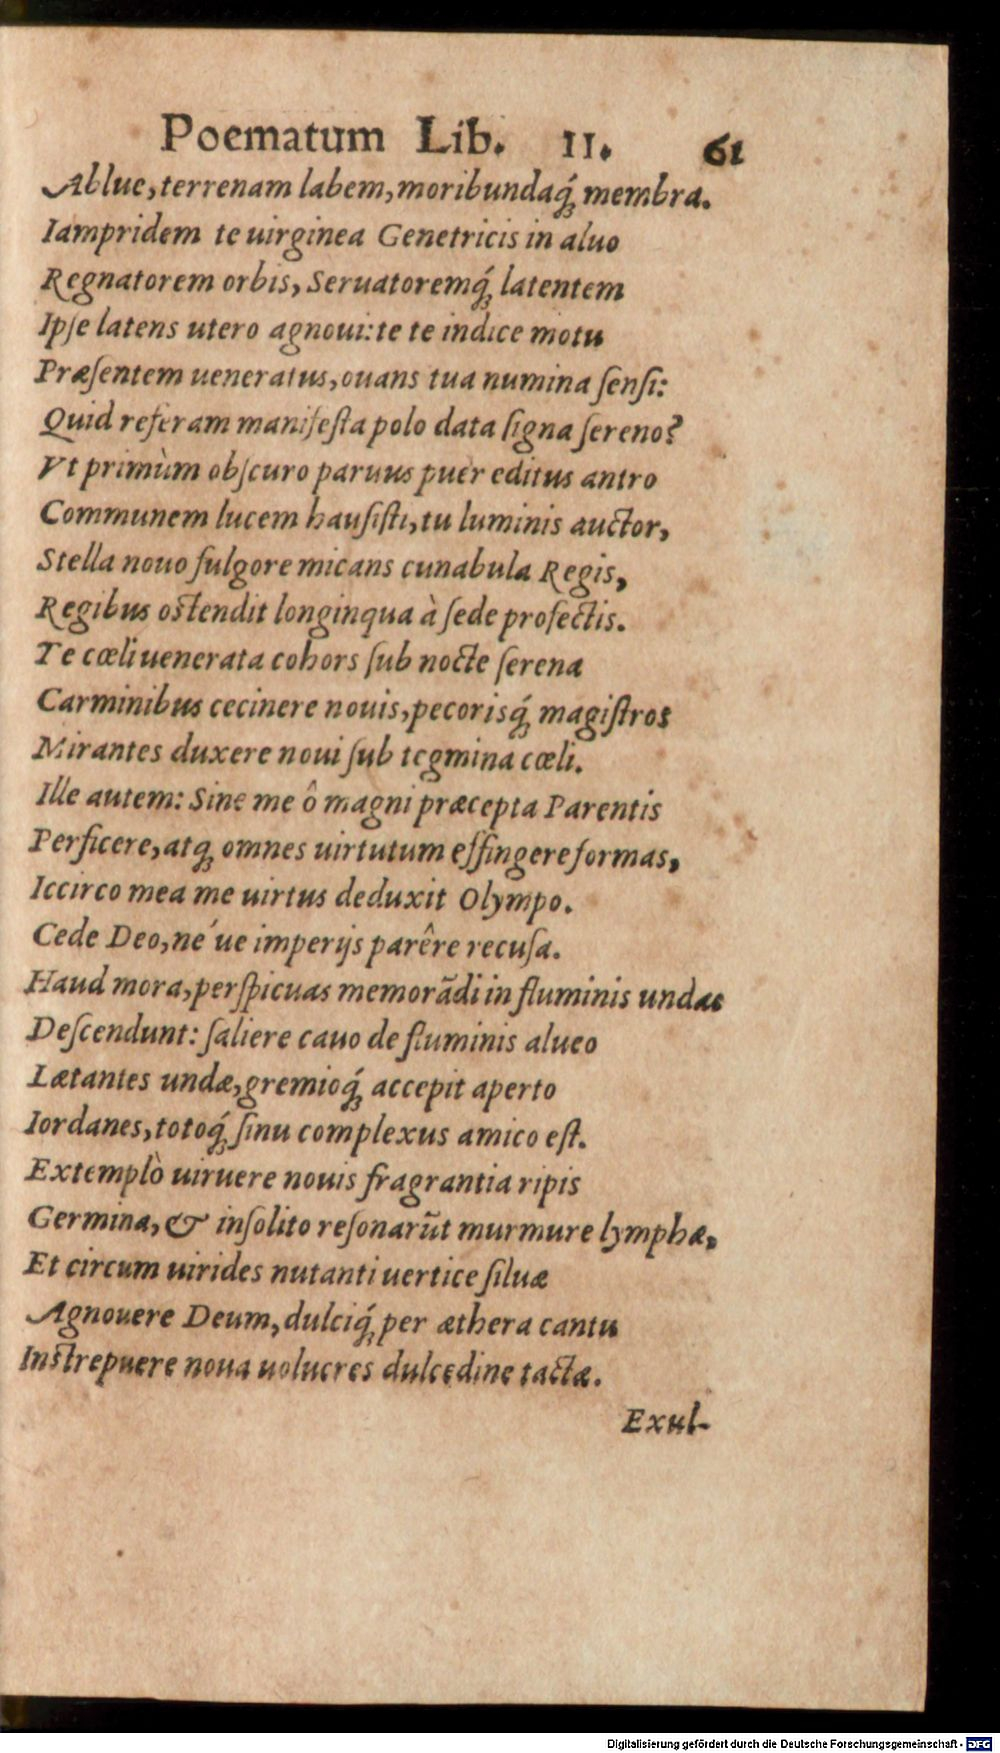 Poematum Lib. II. 61
Ablue, terrenam labem, moribundaq́ꝫ membra.
Iampridem te uirginea Genetricis in aluo
Regnatorem orbis, Seruatoremq́ꝫ latentem
Ipſe latens utero agnoui: te te indice motu
Præſentem ueneratus, ouans tua numina ſenſi:
Quid referam manifeſta polo data ſigna ſereno?
Vt primùm obſcuro paruus puer editus antro
Communem lucem hauſiſti, tu luminis auctor,
Stella nouo fulgore micans cunabula Regis,
Regibus oſtendit longinqua à ſede profectis.
Te cœli uenerata cohors ſub nocte ſerena
Carminibus cecinere nouis, pecorisq́ꝫ magiſtros
Mirantes duxere noui ſub tegmina cœli.
Ille autem: Sine me ô magni præcepta Parentis
Perficere, atqꝫ omnes uirtutum effingere formas,
Iccirco mea me uirtus deduxit Olympo.
Cede Deo, ne´ue imperijs parêre recuſa.
Haud mora, perſpicuas memorãdi in fluminis undas
Deſcendunt: ſaliere cauo de fluminis alueo
Lætantes undæ, gremioq́ꝫ accepit aperto
Iordanes, totoq́ꝫ ſinu complexus amico eſt.
Extemplò uiruere nouis fragrantia ripis
Germina, & inſolito reſonarũt murmure lymphæ,
Et circum uirides nutanti uertice ſiluæ
Agnouere Deum, dulciq́ꝫ per æthera cantu
Inſtrepuere noua uolucres dulcedine tactæ.
Exul-
Digitalisierung gefördert durch die Deutsche Forschungsgemeinschaft - DFG